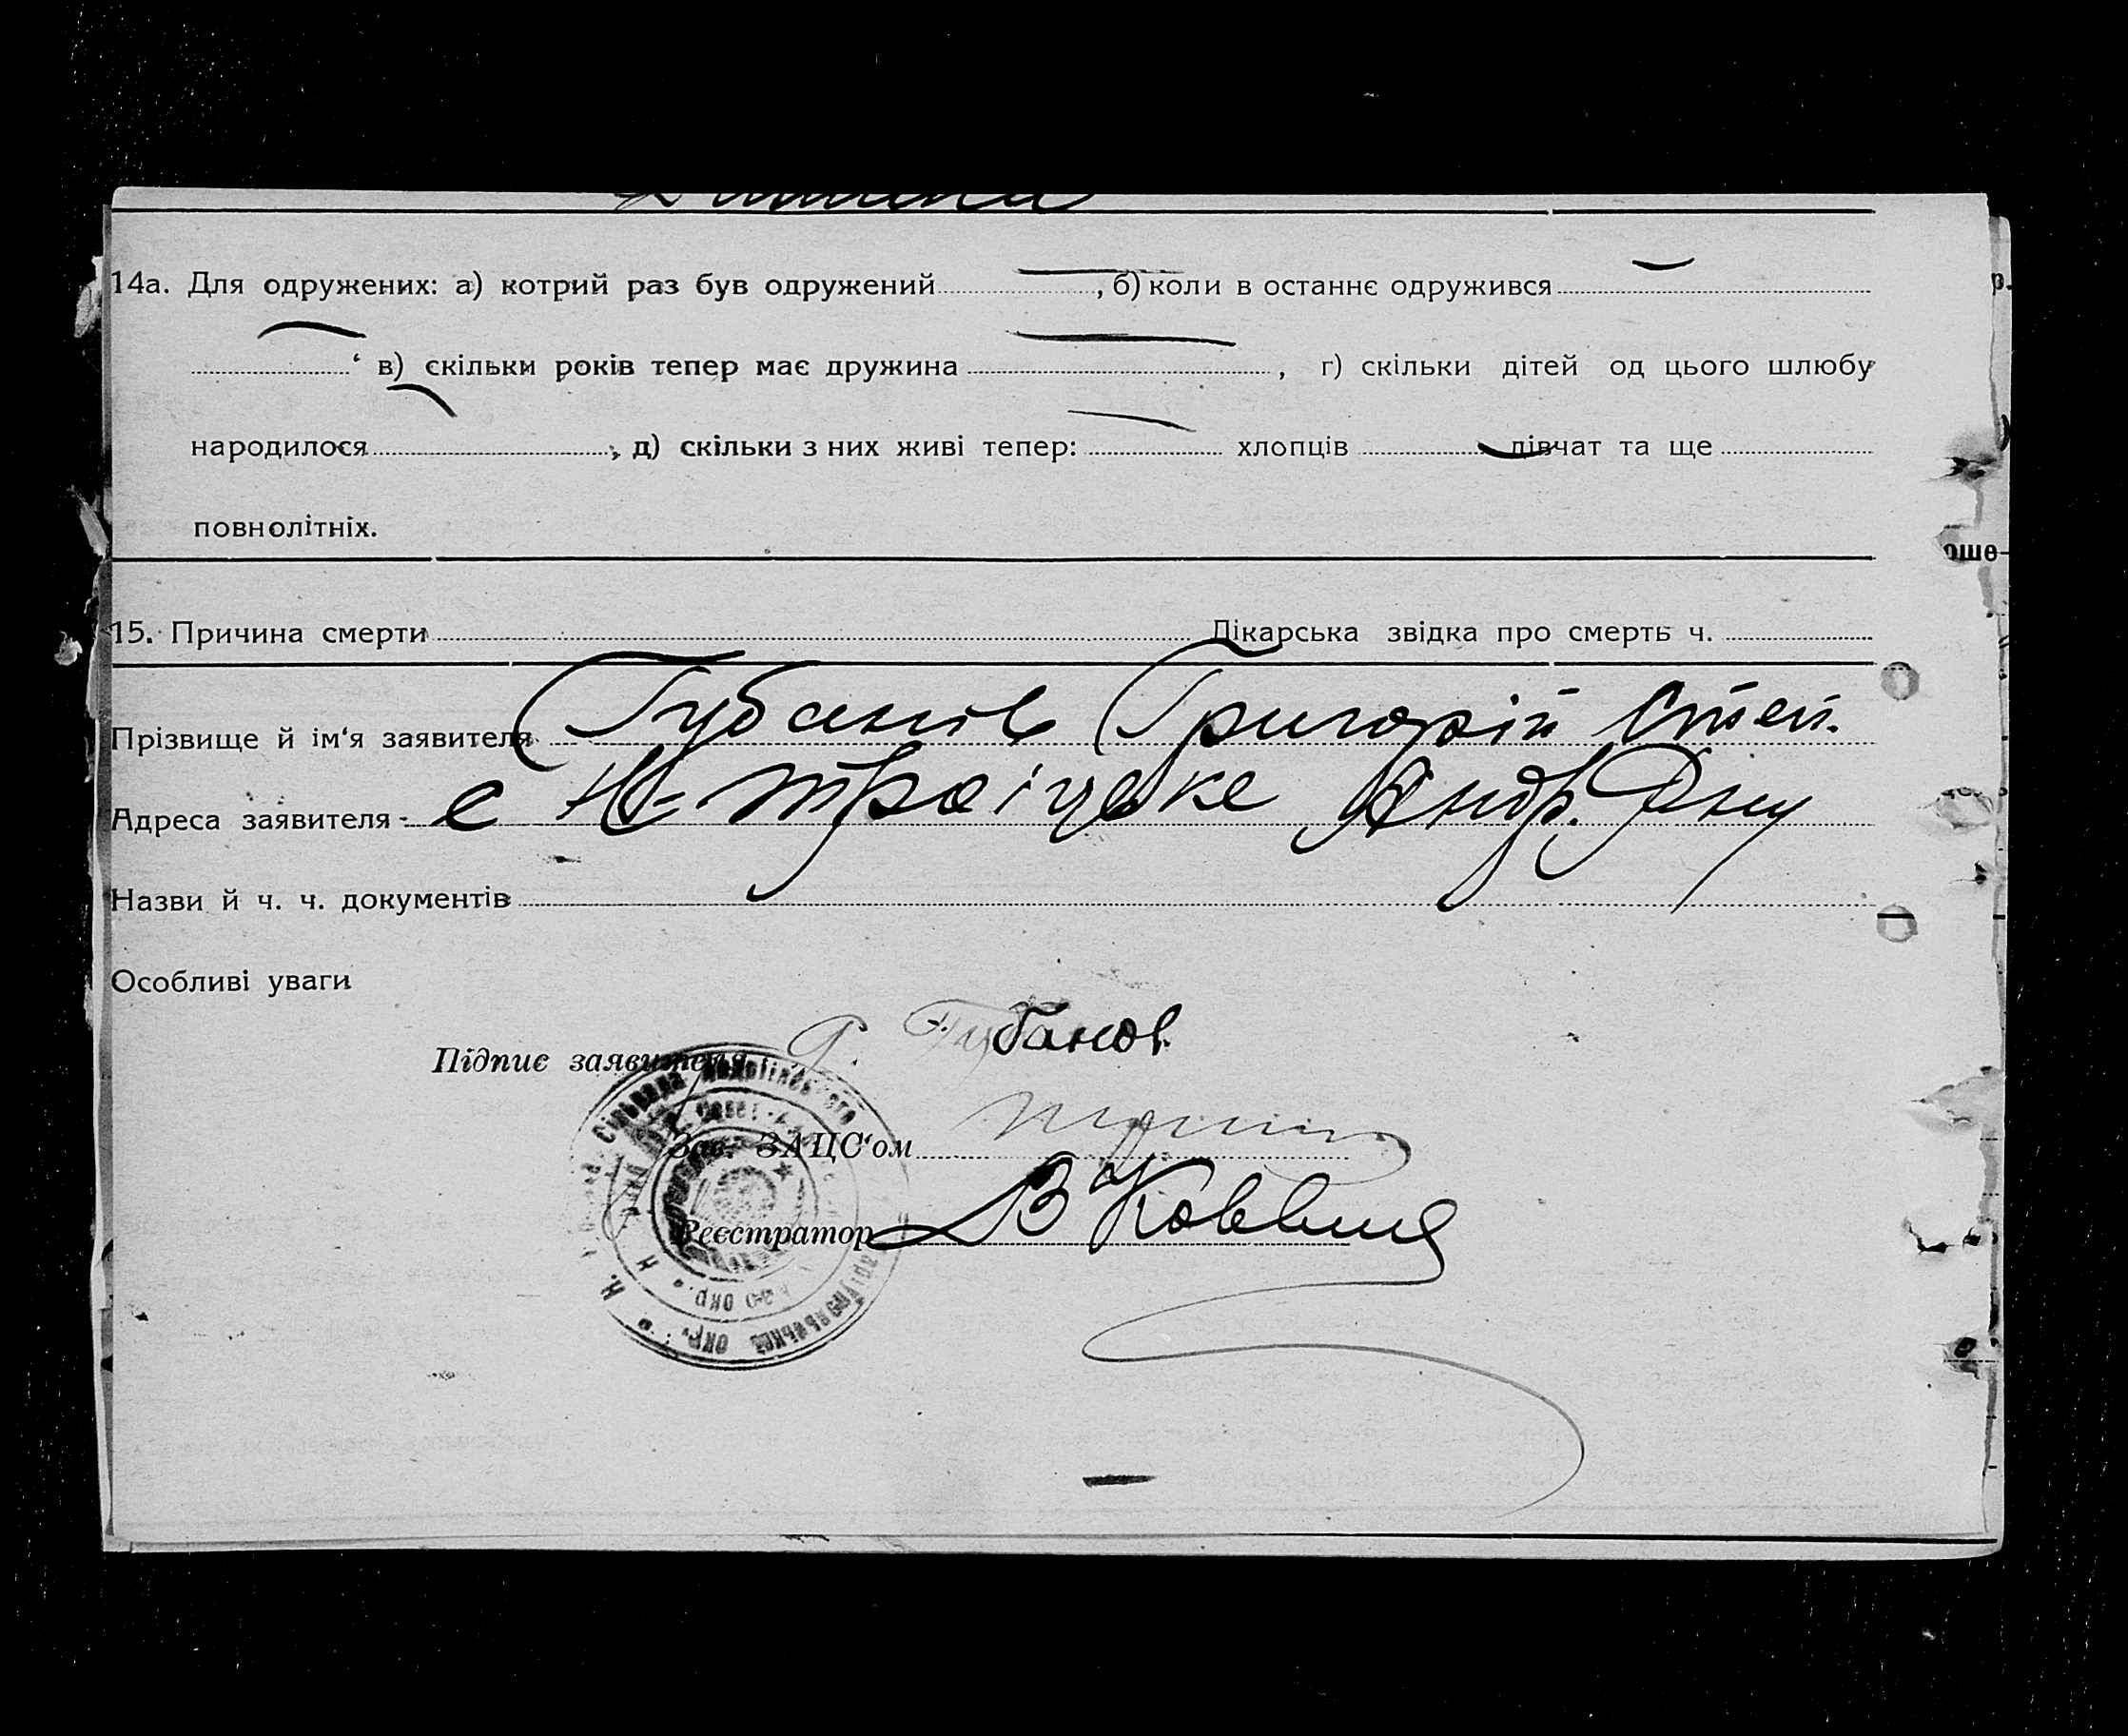 14а. Для одружених: а) котрий раз був одружений , б) коли в останнє одружився р.
‘ в) скільки років тепер має дружина , г) скільки дітей од цього шлюбу
народилося , д) скільки з них живі тепер: хлопців дівчат та ще
повнолітніх.
оше-
15. Причина смерти Лікарська звідка про смерть ч.
Прізвище й ім‘я заявителя Губанів Григорій Степ.
Адреса заявителя - с Н-Троіцьке Андр. Рну
Назви й ч. ч. документів
Особливі уваги
Підпис заявителя Г. Губанов
Зав. ЗАЦС‘ом
Реєстратор В
окр.